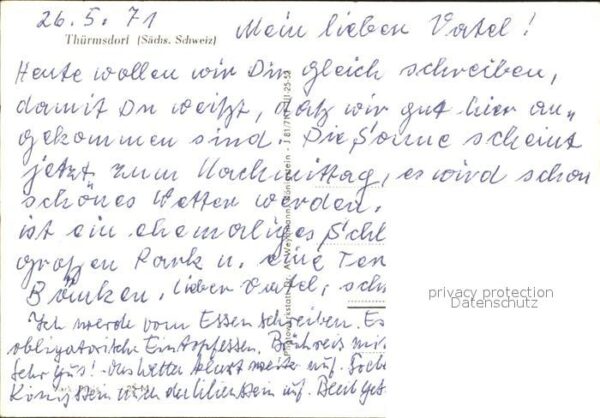 26.5.71
Mein lieben Vatel!
Thürmsdorf (Sächs. Schweiz)
Heute wollen wir Dir gleich schreiben,
damit Du weißt, daß wir gut hier an„
gekommen sind. Die Sonne scheint
jetzt zum Nachmittag, es wird schon
schönes Wetter werden.
ist ein ehemaliges Schl
großen Park u. eine Ter
Bänken. Lieber Vatel, sch
Ich werde vom Essen schreiben. Es
obligatorische Eintopfessen. Brühreis mi
Sehr gut! das Wetter klart weiter auf.
Königstein und der Lilienstein auf.
privacy protection
Datenschutz